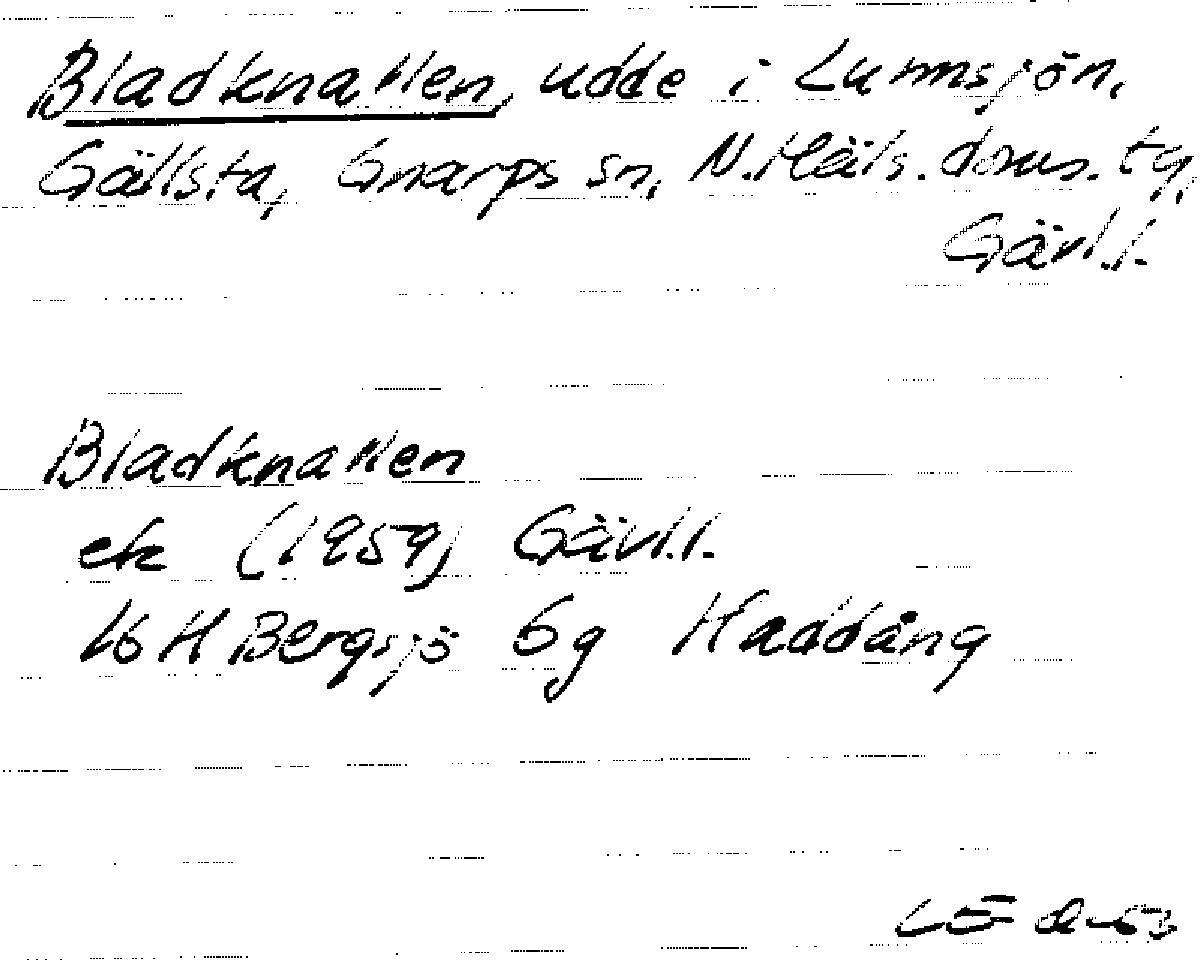 Bladknatten, udde i Lummsjön,
Gällsta, Gnarps sn, N. Häls. doms. tg,
Gävl. l.
Bladknatten
ek (1959) Gävl. l.
16 H Bergsjö 6g Haddäng